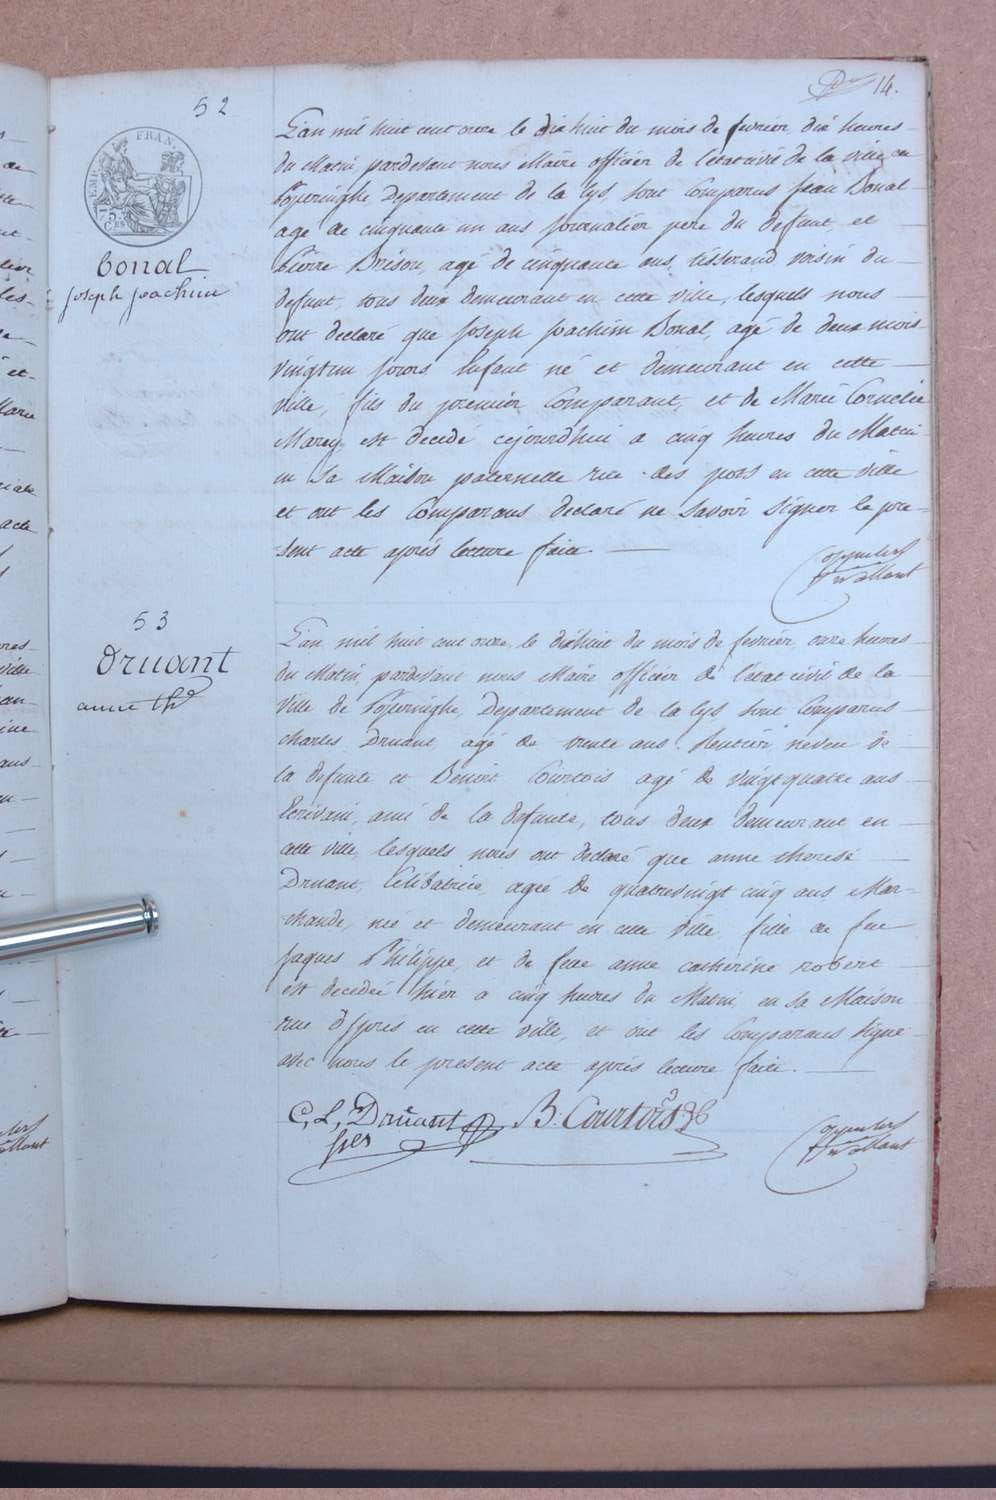 14.
52
EMP. FRAN.
75 C.es
Bonal
Joseph Joachim
L'an mil huit cent onze le dix huit du mois de fevrier, dix heures
du Matin pardevant nous Maire officier de l'etat civil de la ville de
Poperinghe Departement de la lys, sont Comparus Jean Bonal
agé de cinquante un ans Journalier pere du defunt, et
Pierre Brisou, agé de cinquante ans, tisserand voisin du
defunt, tous deux demeurant en cette ville, lesquels nous
ont declaré que Joseph Joachim Bonal, agé de deux mois
vingt un jours Enfant né et demeurant en cette
ville, fils du premier Comparant, et de Marie Cornelie
Marey est decedé cejourdhui a cinq heures du Matin
en sa Maison paternelle rue des pots en cette ville
et ont les Comparans declaré ne savoir signer le pre-
sent acte après lecture faite.
53
Druant
anne th.
L'an mil huit cent onze, le dixhuit du mois de fevrier, onze heures
du Matin, pardevant nous Maire officier de l'etat civil de la
ville de Poperinghe, Departement de la lys sont Comparus
charles Druant, agé de trente ans Rentier neveu de
la defunte et Benoit Courtois agé de vingt quatre ans
Ecrivain, ami de la defunte, tous deux demeurant en
cette ville, lesquels nous ont declaré que anne therese
Druant, Celibatrice, agée de quatrevingt cinq ans Mar-
chande, née et demeurant en cette ville, fille de feu
Jaques Philippe, et de feue anne catherine robert
est decedée hier a cinq heures du Matin en sa Maison
rue d'Ipres en cette ville, et ont les Comparans signé
avec nous le present acte après lecture faite.
C, L, Druant
B. Courtois